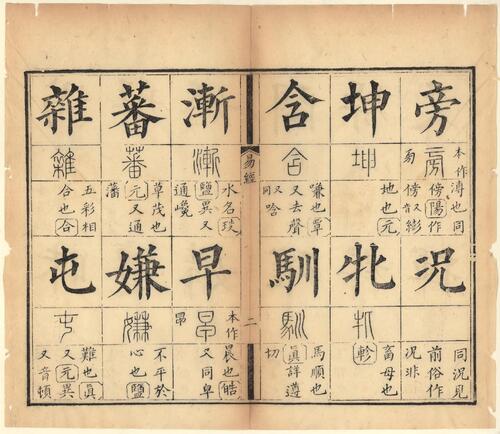 旁
本作
溥也同
傍陽作
坤
地也元
含
嗛也覃
又去聲
况
同况見
前俗作
况非
牝
畜母也
軫
馴
馬順也
眞詳遵
切
易經
二
漸
水名琰
鹽異又
通巉
蕃
草茂也
元又通
藩
雜
五彩相
合也合
早
本作
晨也皓
又同皁
嫌
不平於
心也鹽
屯
難也眞
又元異
又音頓